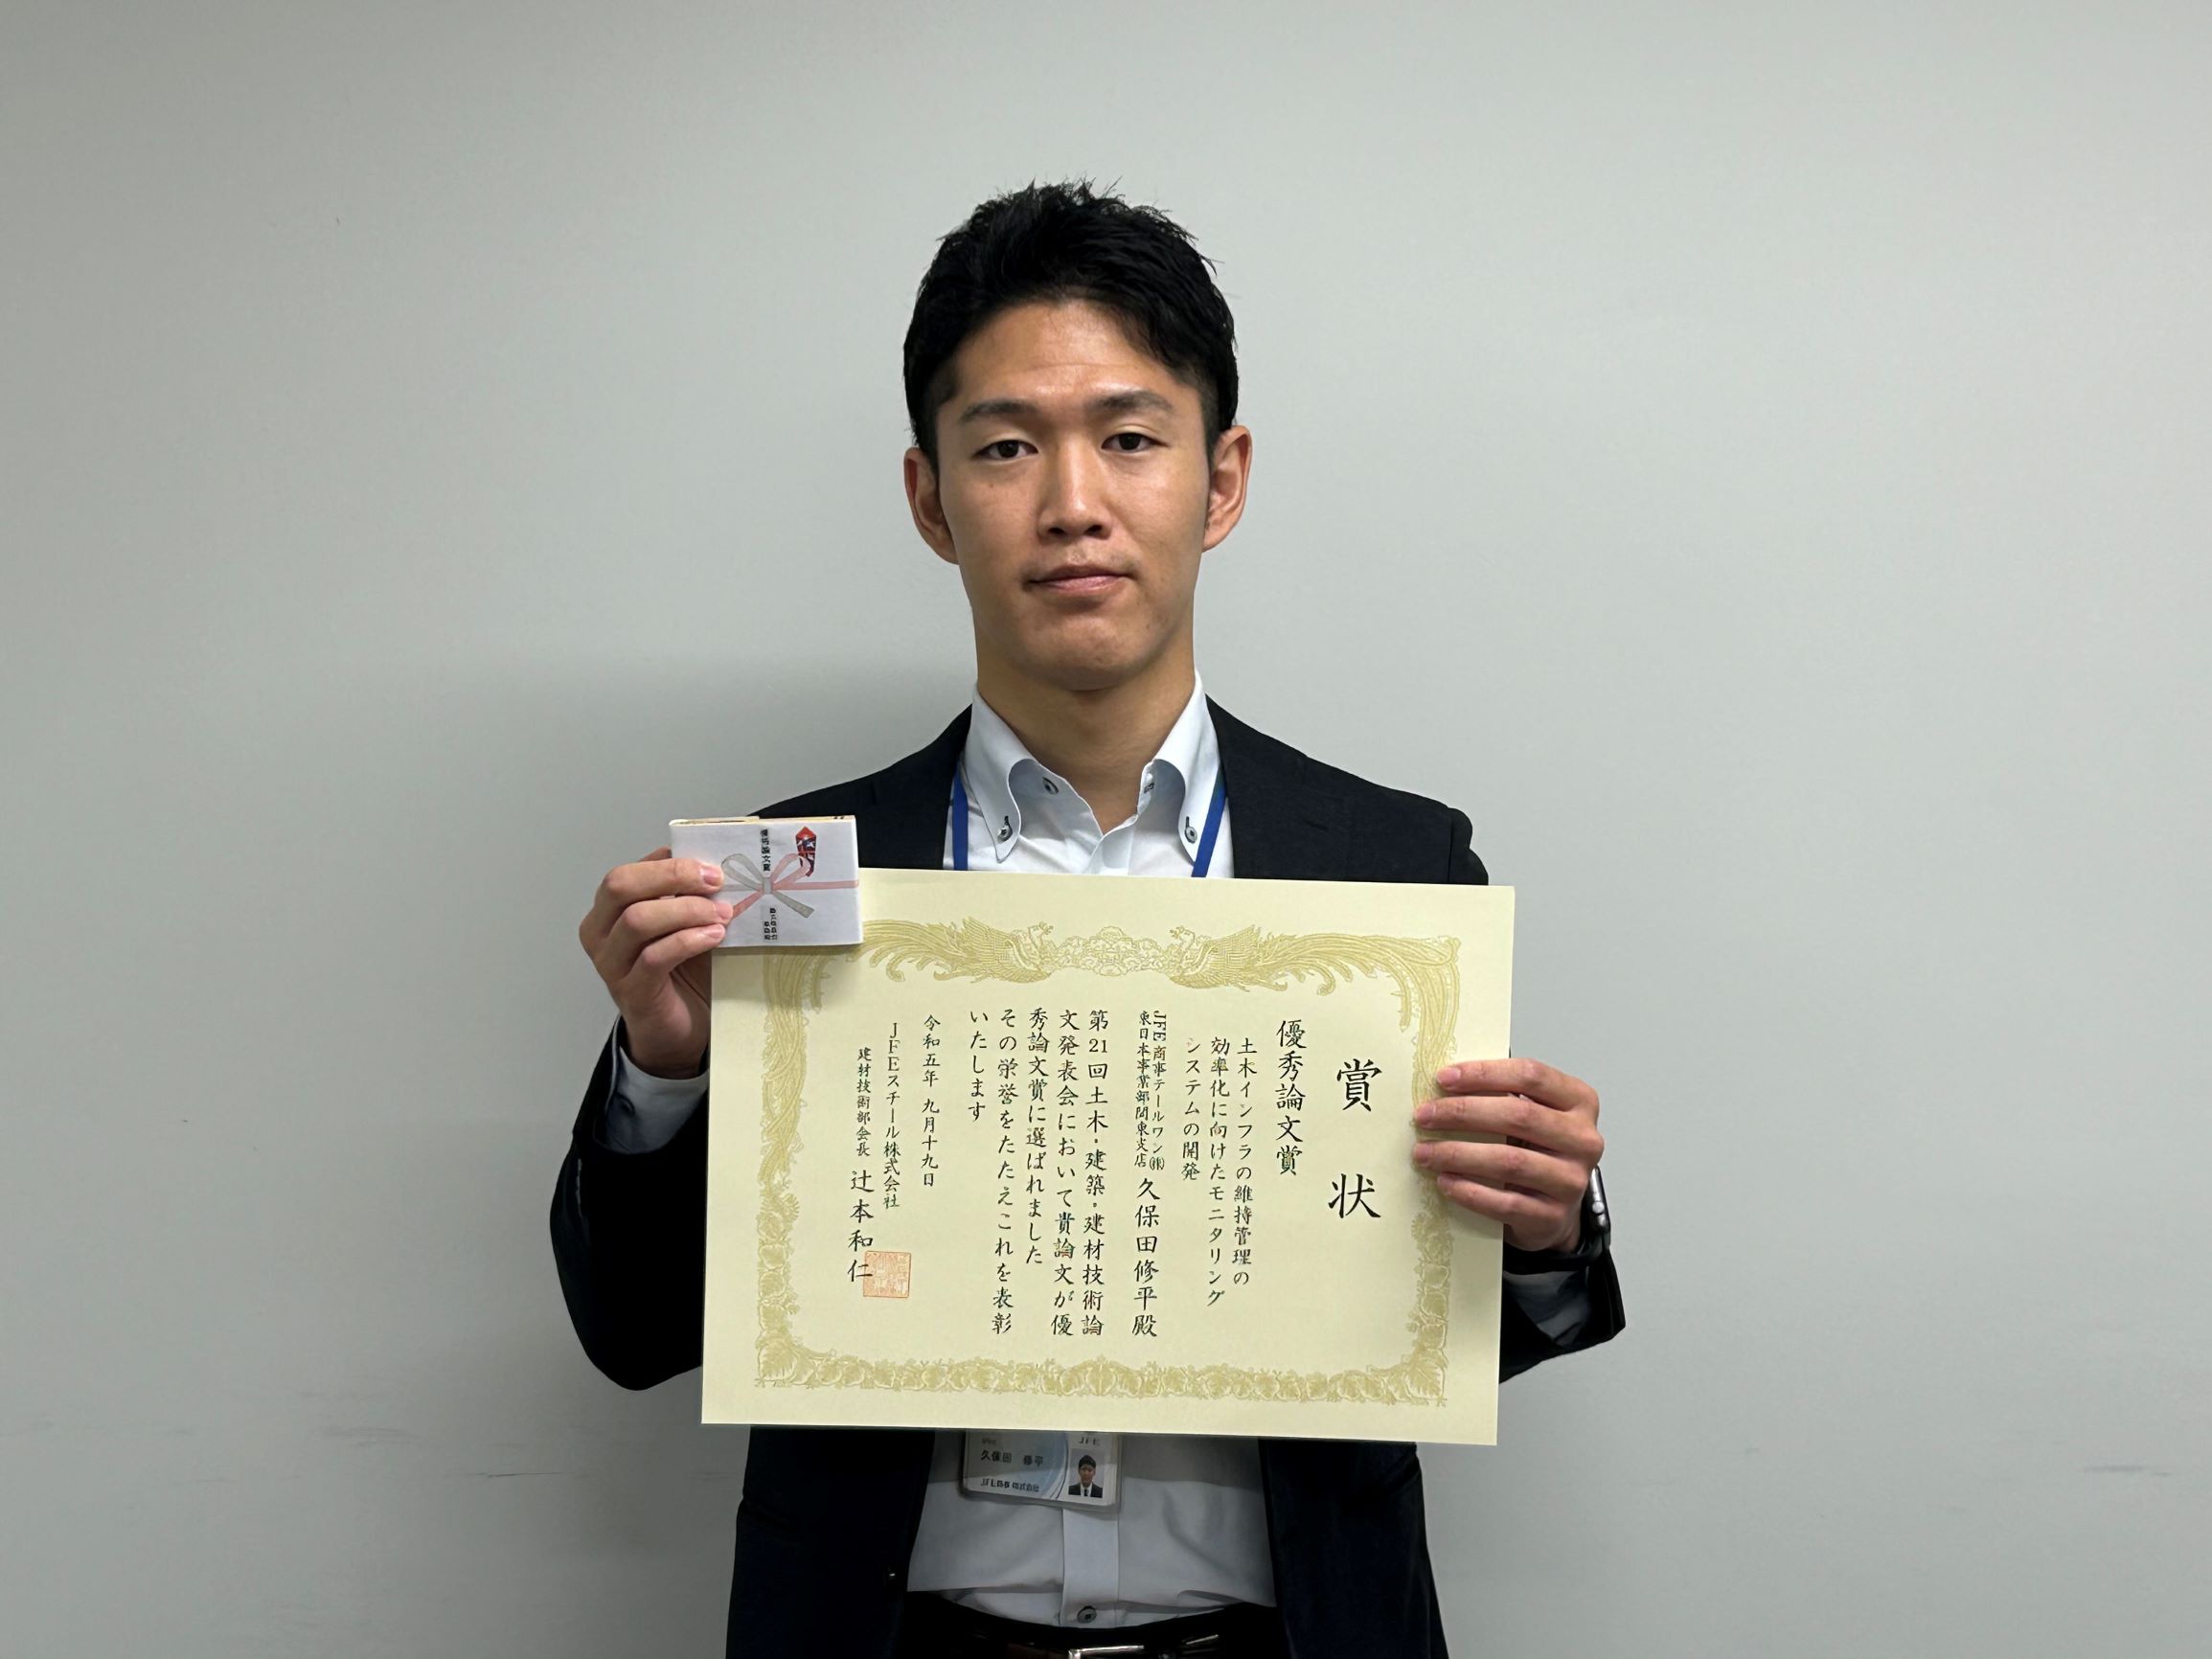 賞状
優秀論文賞
土木インフラの維持管理の
効率化に向けたモニタリング
システムの開発
JFE商事テールワン㈱
東日本事業部関東支店
久保田修平殿
第21回土木・建築・建材技術論
文発表会において貴論文が優
秀論文賞に選ばれました
その栄誉をたたえこれを表彰
いたします
令和五年 九月十九日
JFEスチール株式会社
建材技術部会長 辻本和仁
優秀論文賞
JFE
久保田 修平
JFE商事 株式会社